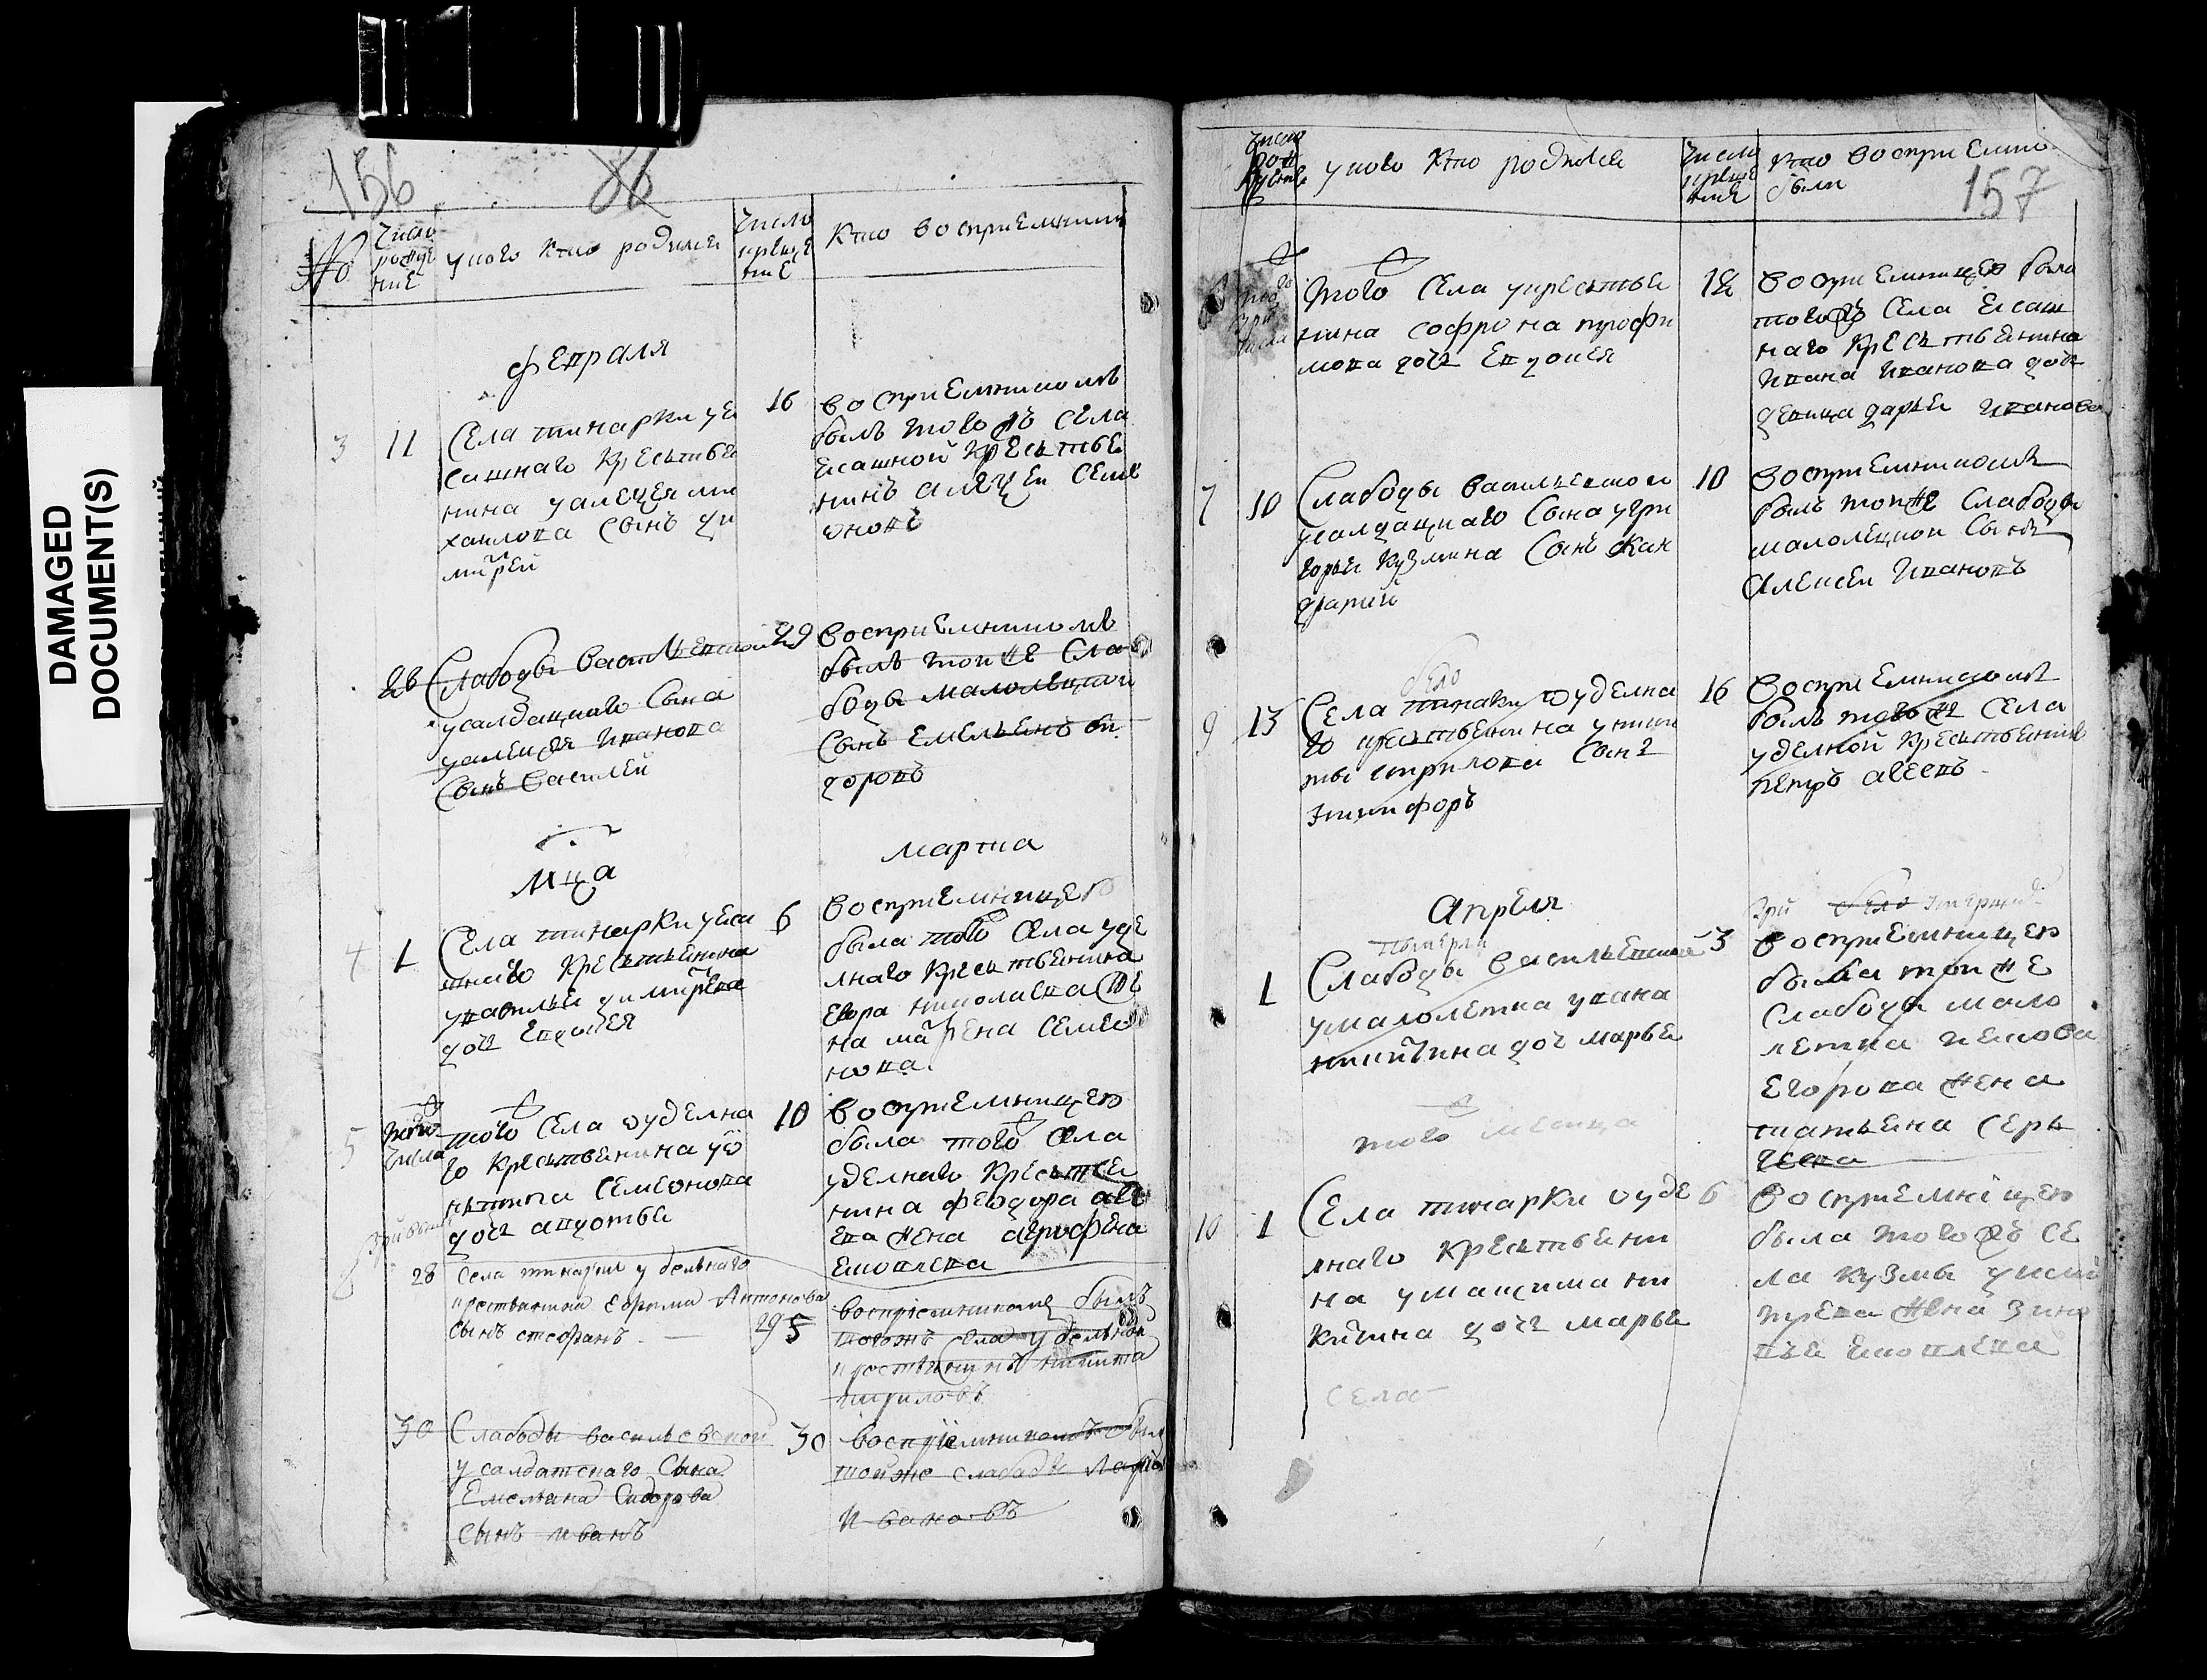 DAMAGED
DOCUMENT(S)
156
86
№
Число
рожде
ние
у кого кто родился
Число
креще
ние
Кто восприемники
февраля
3
11
Села тинарки уе
сашнаго крестья
нина
хаилова сынъ ди
митрей
16
восприемникомъ
былъ того жъ села
есашной крестья
нинъ алеѯеи семе
оновъ
28
Слабоды васильевской
у салдацкаго сына
уалеѯея иванова
сынъ василей
29
восприемникомъ
былъ тои же сла
боды малолецкои
сынъ емельянъ си
доровъ
мца
марта
4
1
Села тинарки уеса
шнаго крестьянина
дочь евдокея
6
восприемницею
была того села уде
лнаго крестьянина
егора николаева же
на матрена семео
нова
5
того
числа
того села оуделна
го крестьянина
семеонова
дочь авдотья
10
восприемницею
была того села
уделнаго крестья
нина феодора авсе
ева жена агрофена
яковлева
28
села тинарки удельнаго
крестьянина ефрима Антонова
сынъ стефанъ
29
5
воспріемникомъ былъ
тогожъ села удельной
крестьянинъ никита
кириловъ
30
Слабоды васильевской
у салдатскаго сына
Емельяна Сидорова
сынъ иванъ
30
воспріемникомъ был
тойже слабоды
Ивановъ
Число
рож
дение
у кого кто родился
Число
креще
ние
кто восприемники
были
157
того
числа
того села укрестья
нина софрона трофи
мова дочь евдокея
12
восприемницею была
тогожъ села есаш
наго крестьянина
ивана иванова дочь
девица дарья иванова
7
10
Слабоды васильевской
усалдацкаго сына угри
горья кузмина сынъ жан
дратий
10
восприемникомъ
былъ тоиже слабоды
малолецкои сынъ
алексеи ивановъ
9
13
Села тинарки оуделна
го крестьянина уники
ты кирилова сынъ
никифоръ
16
восприемникомъ
былъ того же села
уделной крестьянинъ
петръ авсевъ
Апреля
1
Слабоды васильевской
умалолетка уивана
никитина дочь марья
3
восприемницею
была тои же
слабоды мало
летка иекова
егорова жена
татьяна серь
геева
того месяца
10
1
Села тинарки оуде
лнаго крестьяни
на умаѯима ни
китина дочь марья
6
восприемницею
была того жъ се
ла кузмы дими
треева жена зино
вья яковлева
села